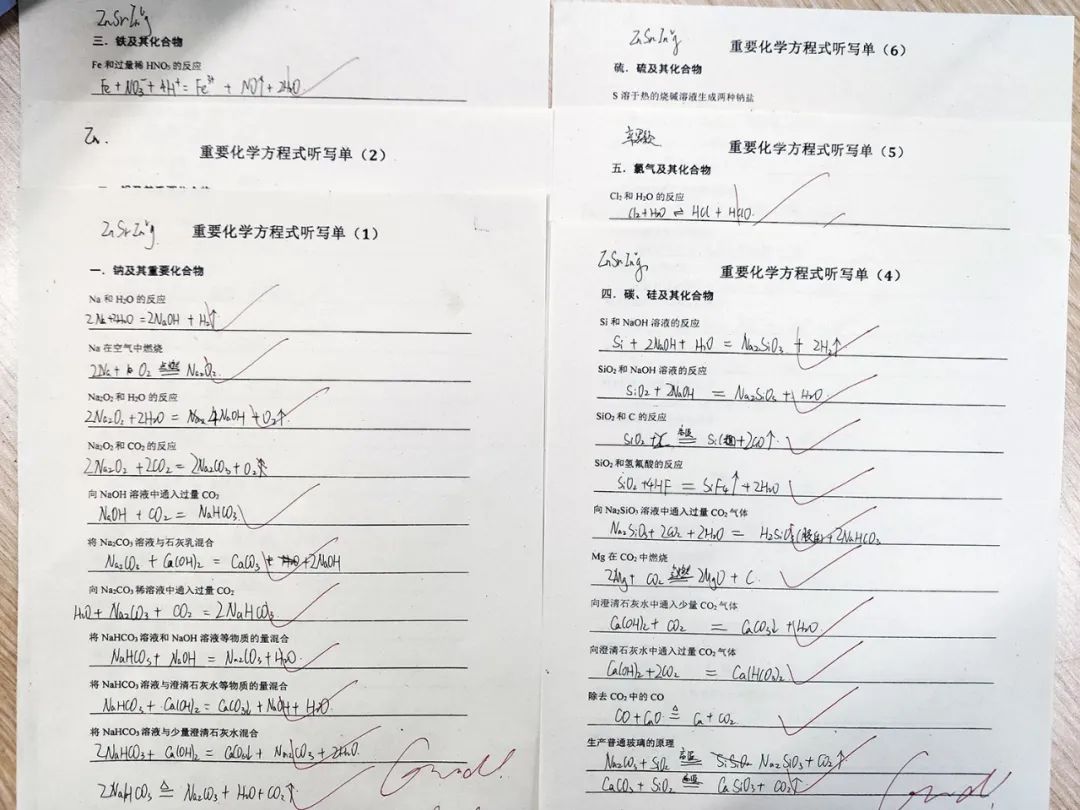 ZnSrIn'g
三．铁及其化合物
Fe 和过量稀 HNO₃ 的反应
Fe + NO₃⁻ + 4H⁺ = Fe³⁺ + NO↑ + 2H₂O
Zn.
重要化学方程式听写单（2）
ZnSrIn'g
重要化学方程式听写单（1）
一．钠及其重要化合物
Na 和 H₂O 的反应
2Na+2H₂O = 2NaOH + H₂↑
Na 在空气中燃烧
2Na + O₂ 点燃 Na₂O₂
Na₂O₂ 和 H₂O 的反应
2Na₂O₂ + 2H₂O = 4NaOH + O₂↑
Na₂O₂ 和 CO₂ 的反应
2Na₂O₂ + 2CO₂ = 2Na₂CO₃ + O₂↑
向 NaOH 溶液中通入过量 CO₂
NaOH + CO₂ = NaHCO₃
将 Na₂CO₃ 溶液与石灰乳混合
Na₂CO₃ + Ca(OH)₂ = CaCO₃ + 2NaOH
向 Na₂CO₃ 稀溶液中通入过量 CO₂
H₂O + Na₂CO₃ + CO₂ = 2NaHCO₃
将 NaHCO₃ 溶液和 NaOH 溶液等物质的量混合
NaHCO₃ + NaOH = Na₂CO₃ + H₂O
将 NaHCO₃ 溶液与澄清石灰水等物质的量混合
NaHCO₃ + Ca(OH)₂ = CaCO₃↓ + NaOH + H₂O
将 NaHCO₃ 溶液与少量澄清石灰水混合
2NaHCO₃ + Ca(OH)₂ = CaCO₃↓ + Na₂CO₃ + 2H₂O
2NaHCO₃ △ Na₂CO₃ + H₂O + CO₂↑
Good!
ZnSrIn'g
重要化学方程式听写单（6）
硫．硫及其化合物
S 溶于热的烧碱溶液生成两种钠盐
重要化学方程式听写单（5）
五．氯气及其化合物
Cl₂ 和 H₂O 的反应
Cl₂ + H₂O ⇌ HCl + HClO
ZnSrIn'g
重要化学方程式听写单（4）
四．碳、硅及其化合物
Si 和 NaOH 溶液的反应
Si + 2NaOH + H₂O = Na₂SiO₃ + 2H₂↑
SiO₂ 和 NaOH 溶液的反应
SiO₂ + 2NaOH = Na₂SiO₃ + H₂O
SiO₂ 和 C 的反应
SiO₂ + 2C 高温 Si(粗) + 2CO↑
SiO₂ 和氢氟酸的反应
SiO₂ + 4HF = SiF₄↑ + 2H₂O
向 Na₂SiO₃ 溶液中通入过量 CO₂ 气体
Na₂SiO₃ + 2CO₂ + 2H₂O = H₂SiO₃(胶体) + 2NaHCO₃
Mg 在 CO₂ 中燃烧
2Mg + CO₂ 点燃 2MgO + C
向澄清石灰水中通入少量 CO₂ 气体
Ca(OH)₂ + CO₂ = CaCO₃↓ + H₂O
向澄清石灰水中通入过量 CO₂ 气体
Ca(OH)₂ + 2CO₂ = Ca(HCO₃)₂
除去 CO₂ 中的 CO
CO + CuO △ Cu + CO₂
生产普通玻璃的原理
Na₂CO₃ + SiO₂ 高温 Na₂SiO₃ + CO₂↑
CaCO₃ + SiO₂ 高温 CaSiO₃ + CO₂↑
Good!